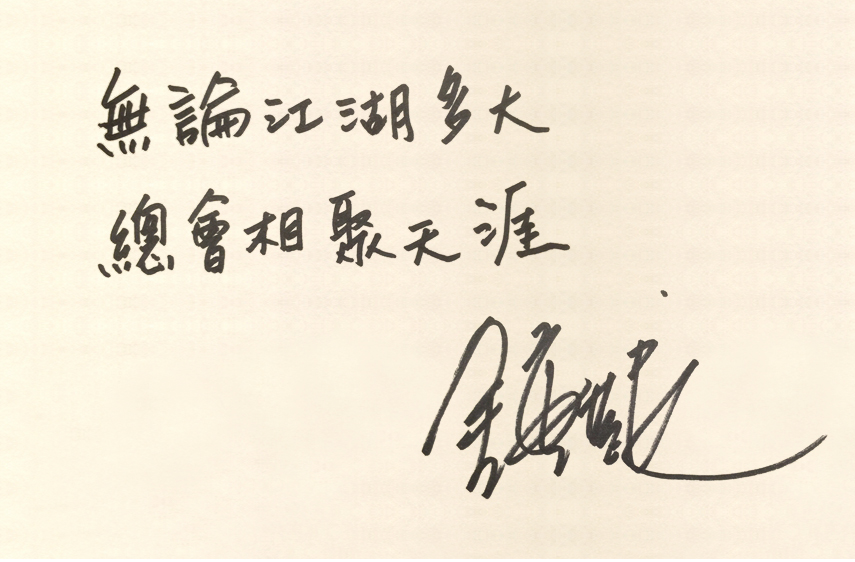 無論江湖多大
總會相聚天涯